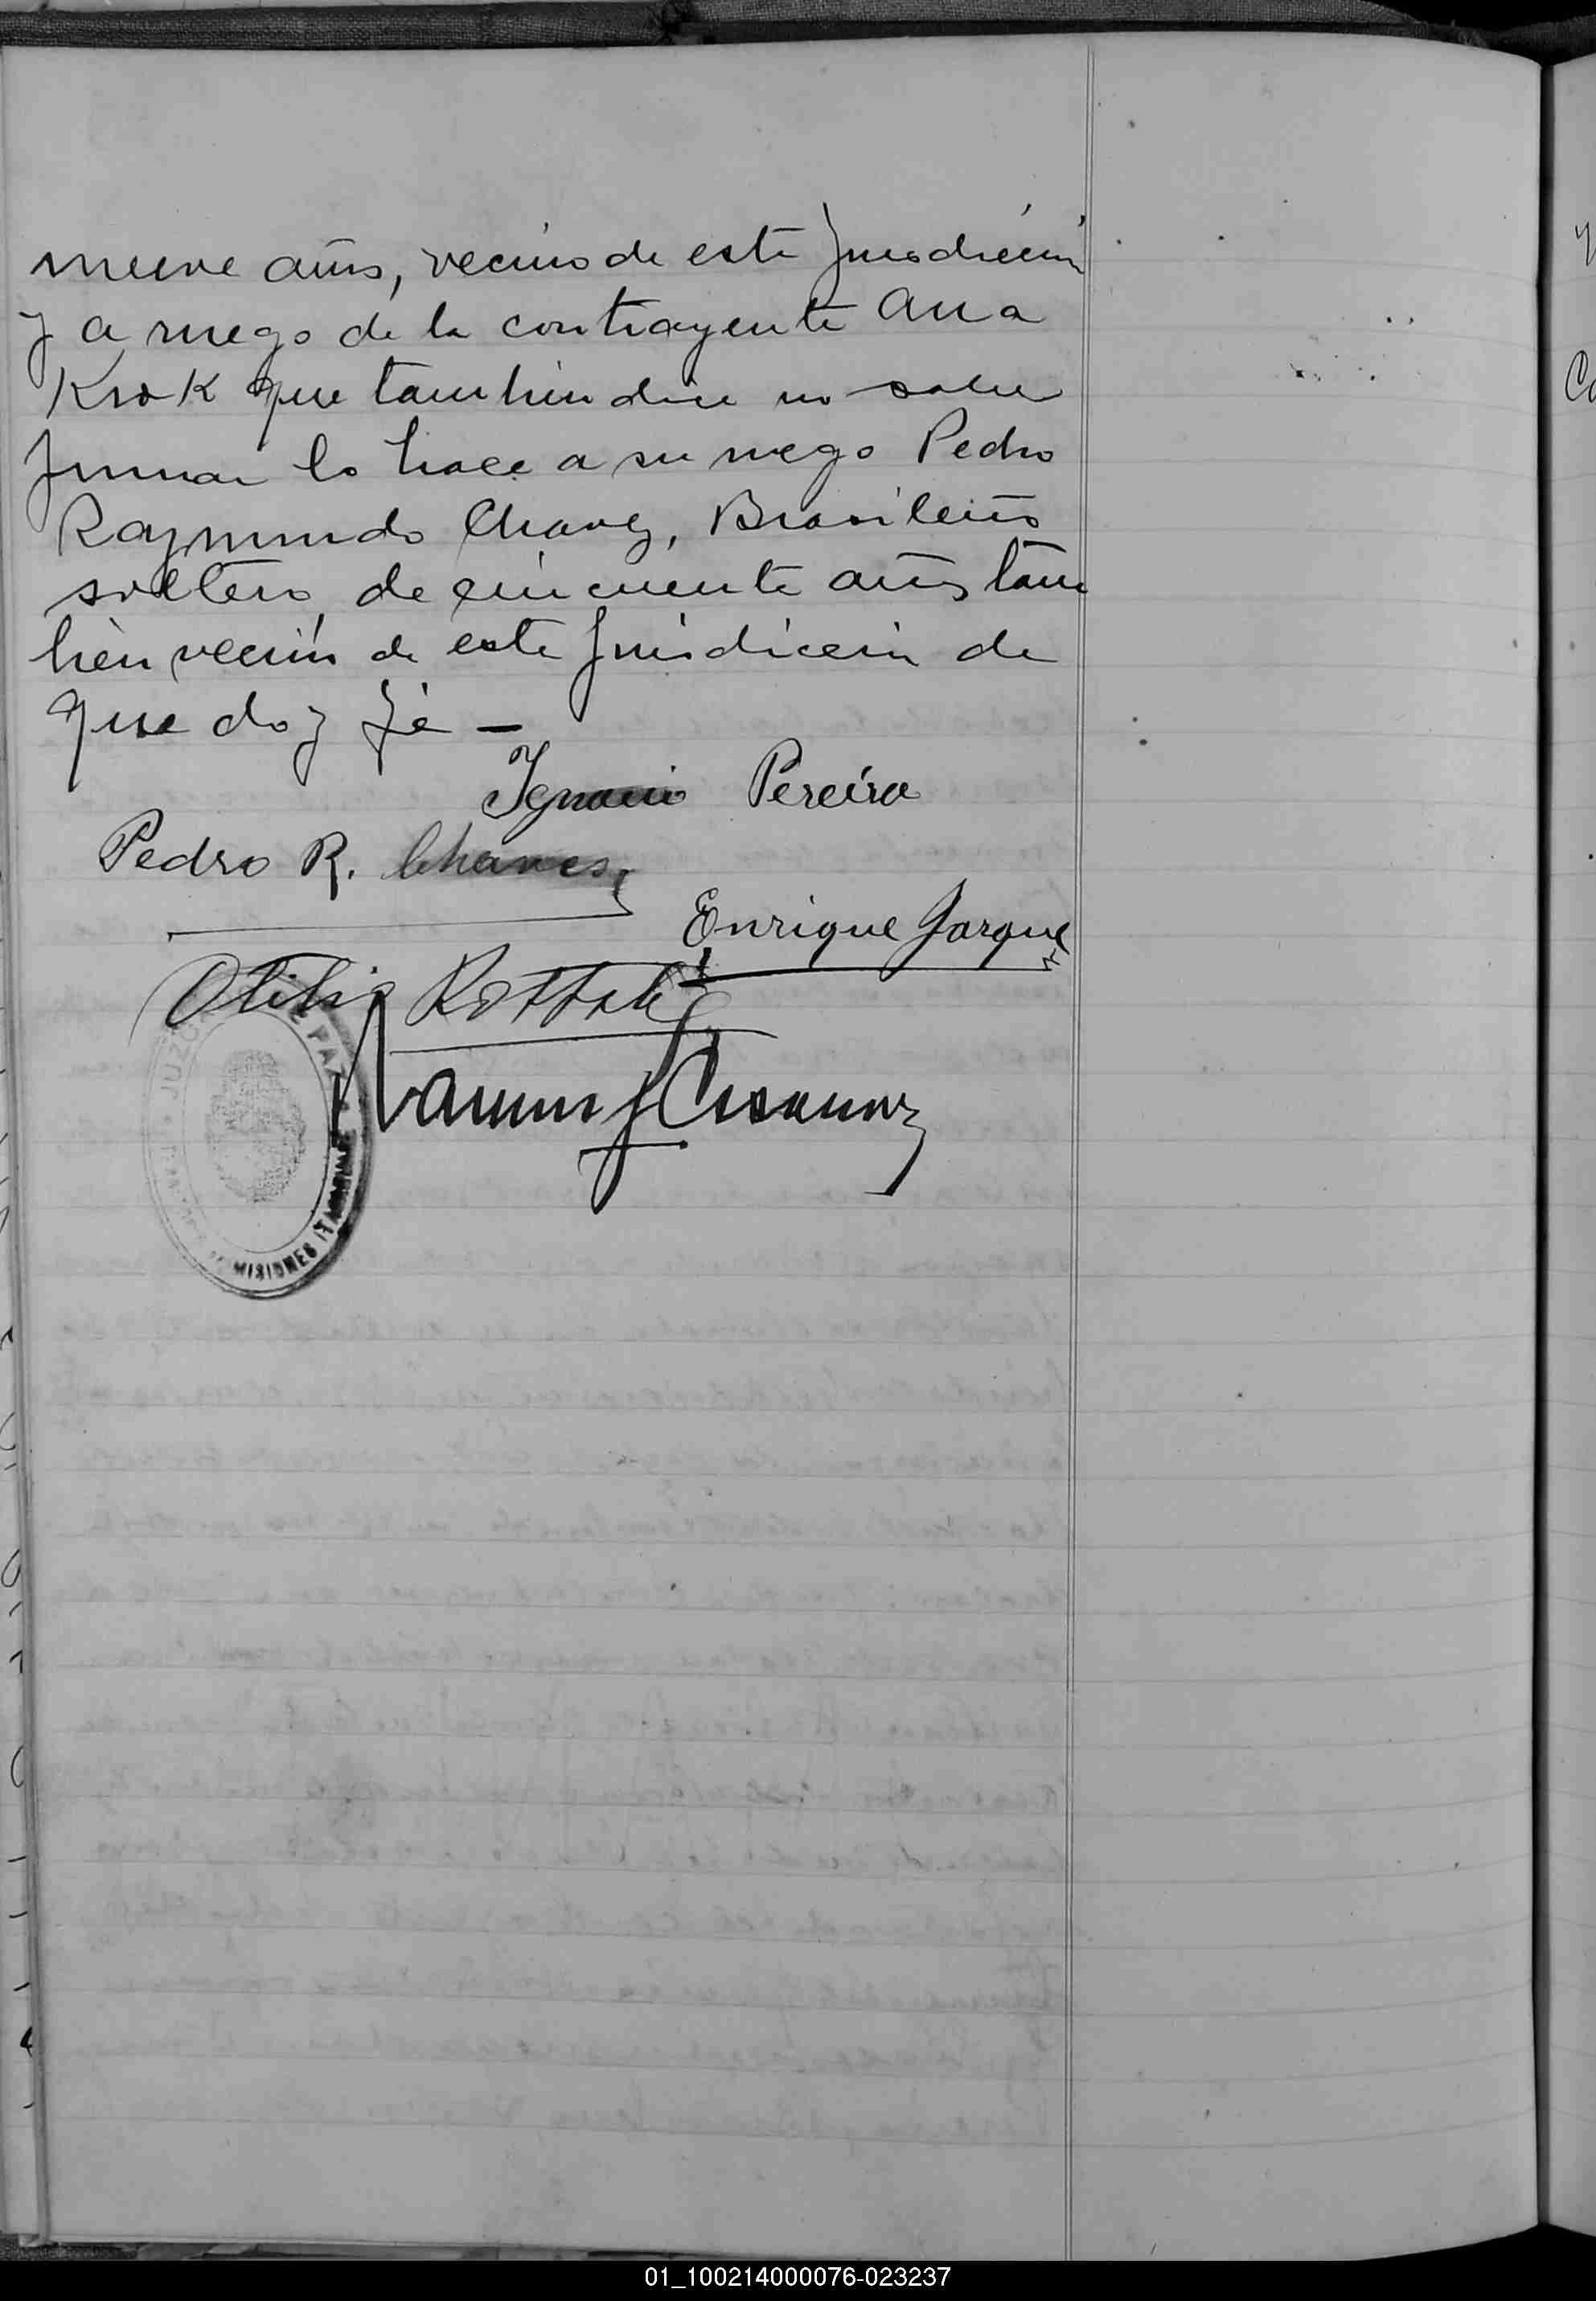 nueve años, vecino de este Jurisdicción
y a ruego de la contrayente Ana
Krok que tambien dice no saber
firmar lo hace a su ruego Pedro
Raymundo Chavez, Brasileño
soltero, de cincuente años tam
bien vecino de este Jurisdiccion de
que doy fé —
Ignacio Pereira
Pedro R. Chaves
Enrique Jarque
JUZG PAZ
MISIONES
01_100214000076-023237